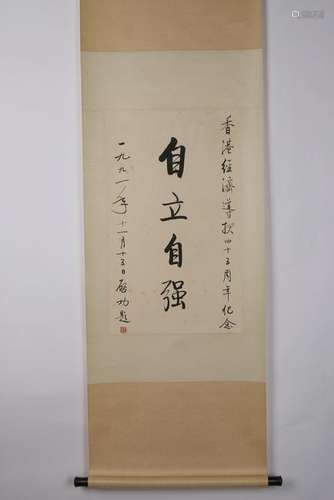 香港经濟導报四十五周年纪念
自立自强
一九九一年十一月十五日启功题